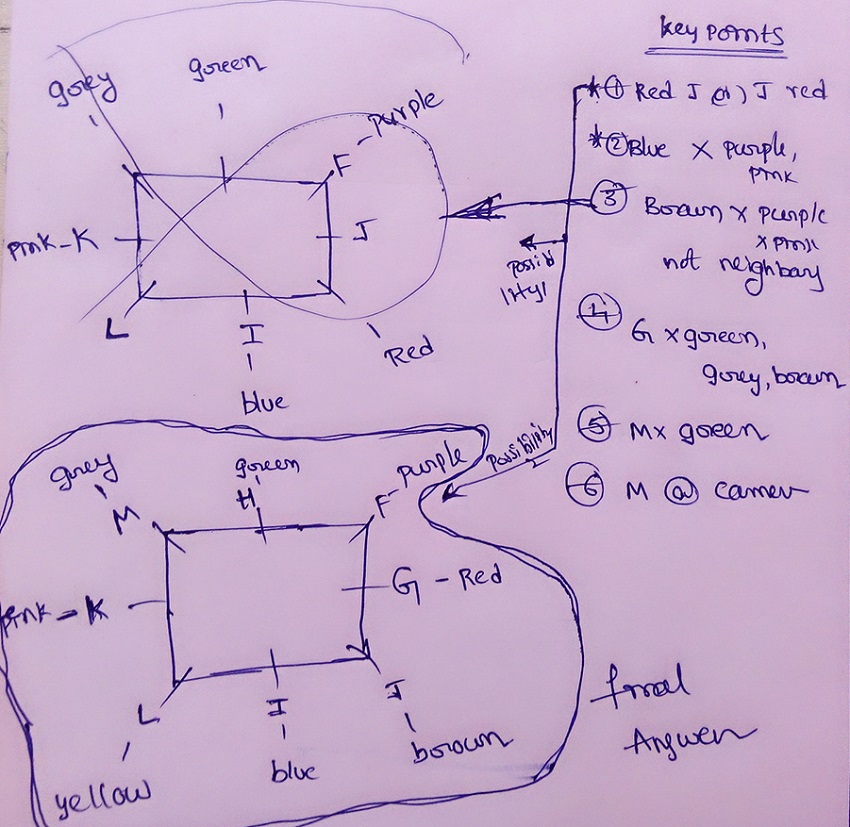 Key Points
* ① Red J (or) J red
* ② Blue X purple,
pink
③ Brown x purple
x pink
not neighbory
④ G x green,
grey, brown
⑤ Mx green
⑥ M @ corner
Possibility
grey green purple
F
Pink-K J
L I Red
blue
Possibility
grey green purple
M H F
Pink - K G - Red
L I J
yellow blue brown
final
Answer